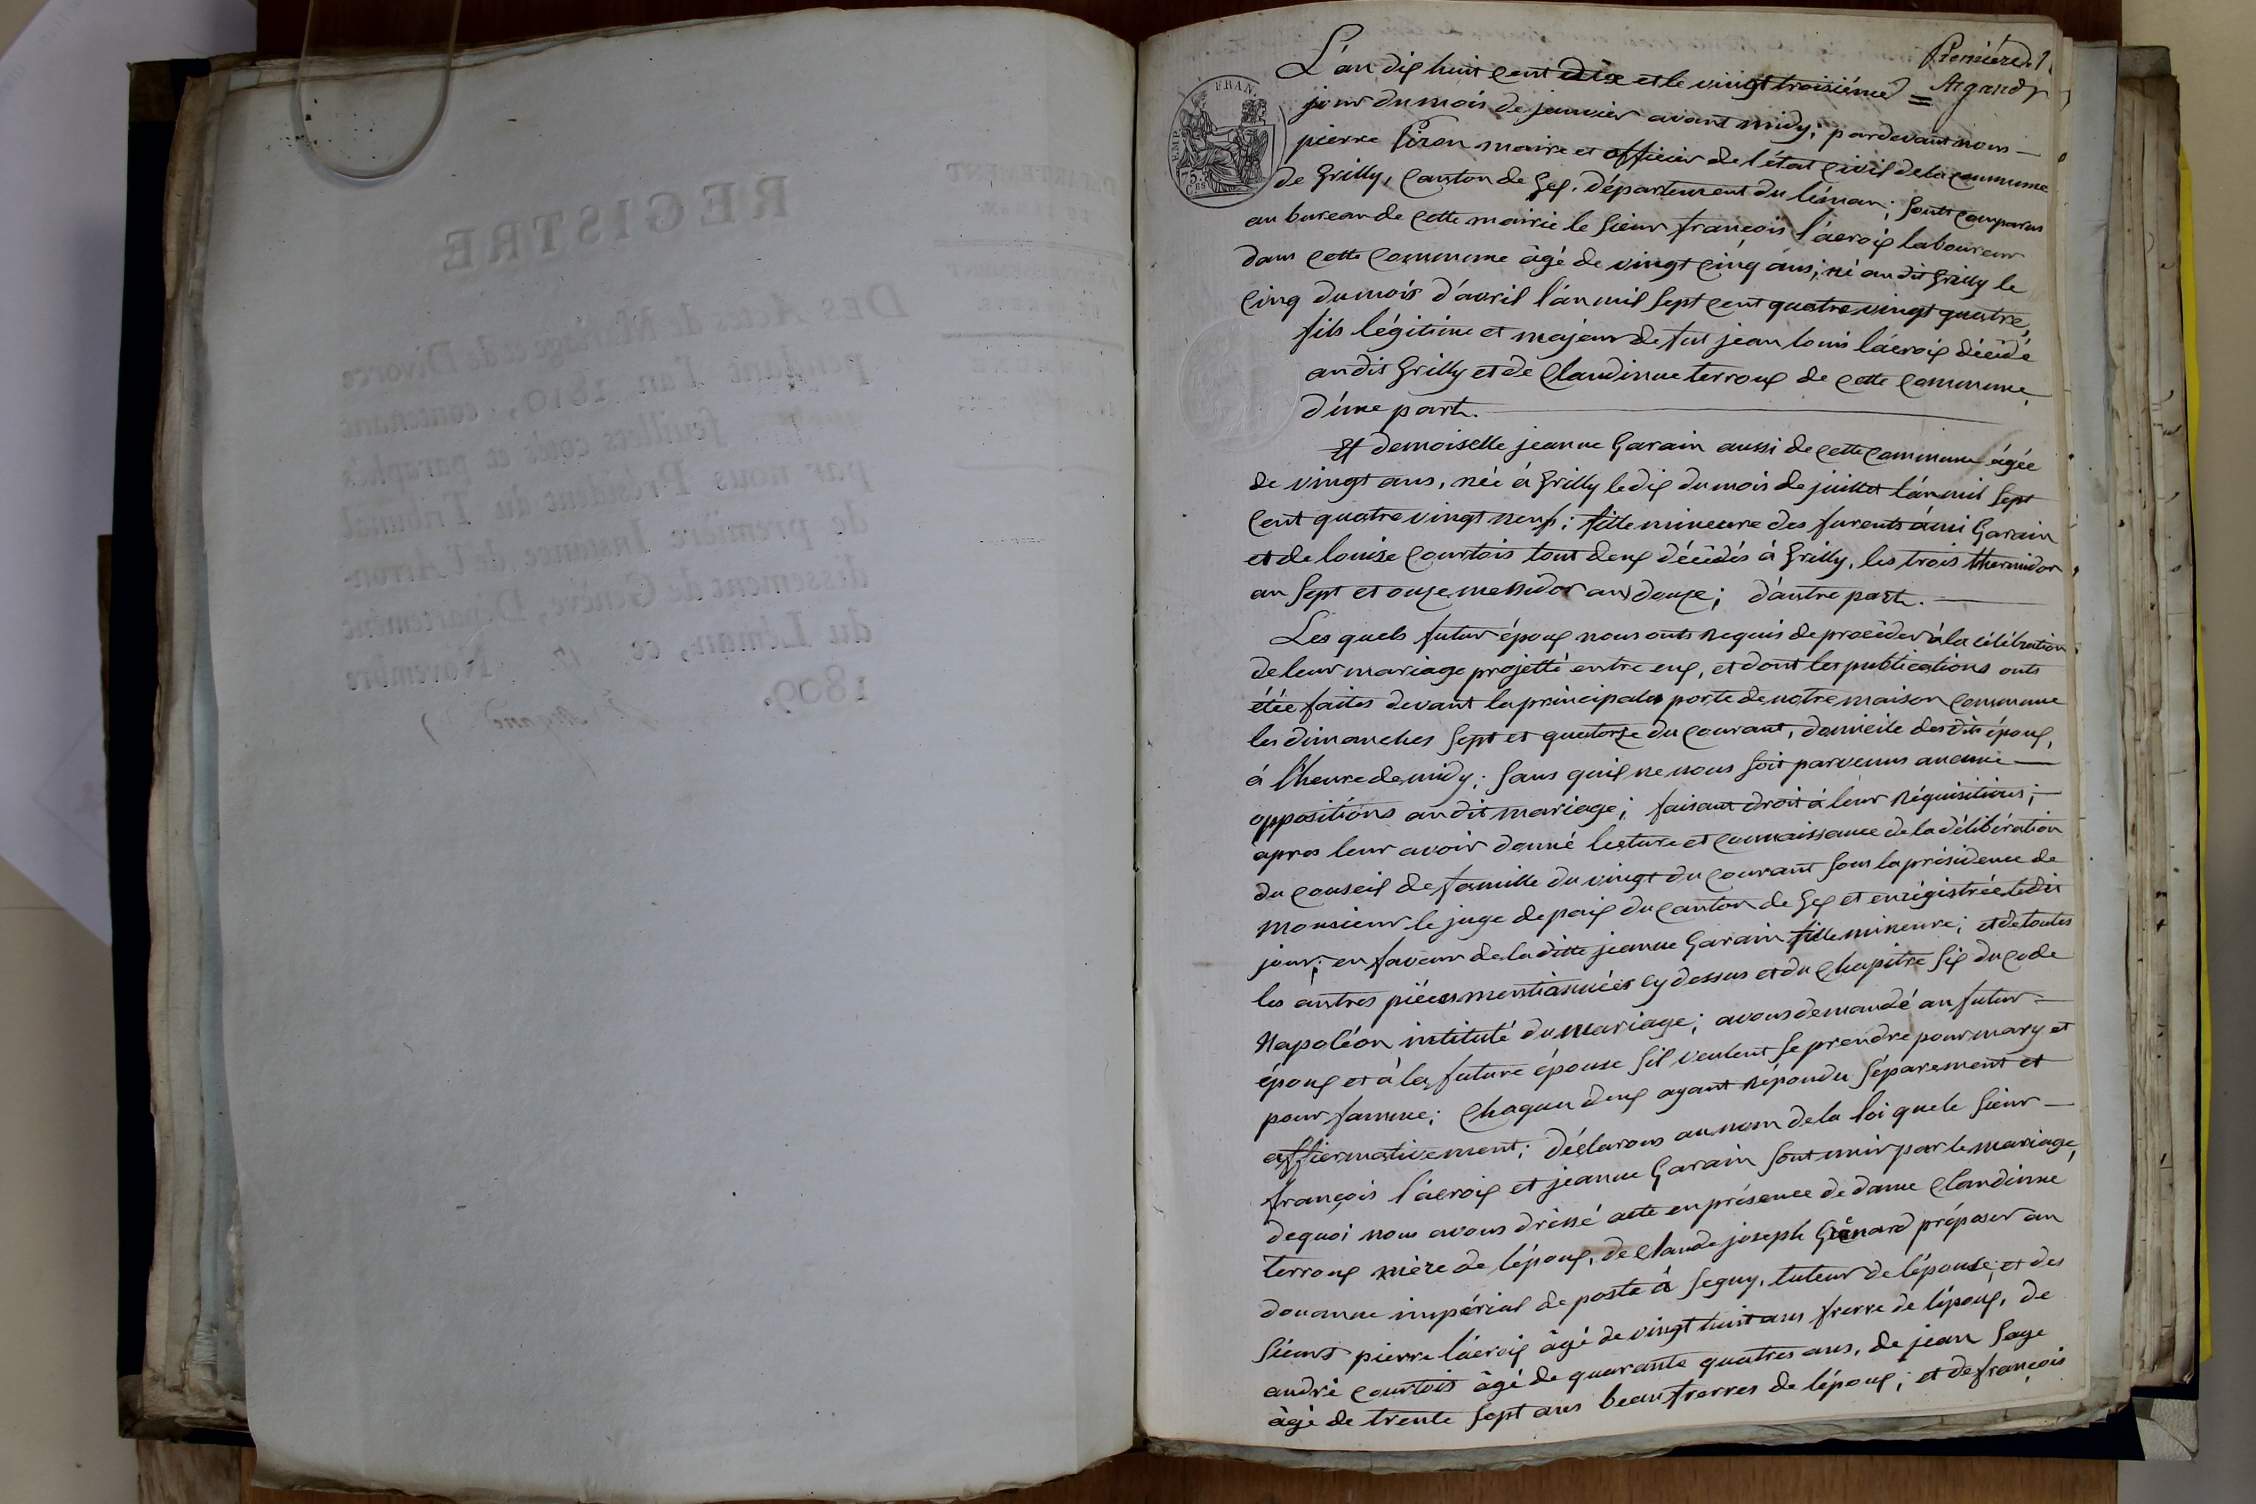 Première
Argand
L'an dix huit cent dix et le vingt troisiéme =
jour du mois de janvier avant midy; pardevant nous —
pierre Piron maire et officier de l'état civil de la commune
de Grilly, canton de Gex, département du léman; sont comparus
au bureau de cette mairie le sieur françois lácroix laboureur
dans cette commune âgé de vingt cinq ans; né au dit Grilly le
cinq du mois d'avril l'an mil sept cent quatre vingt quatre,
fils légitime et majeur de fut jean louis lácroix décédé
au dit Grilly et de claudinne terroux de cette commune,
d'une part.
Et demoiselle jeanne Garain aussi de cette commune âgée
de vingt ans, née á Grilly le dix du mois de juillet l'an mil sept
cent quatre vingt neuf; fille mineure des furents ámi Garain
et de louise courtois tout deux décédés à Grilly, les trois thermidor
an sept et onze messidor an douze; d'autre part.
Les quels futur époux nous onts requis de procéder à la célébration
de leur mariage projetté entre eux, et dont les publications onts
étée faites devant la principale porte de notre maison commune
les dimanches sept et quatorze du courant, domicile des dits époux,
á l'heure de midy; sans quil ne nous soit parvenus aucune —
oppositions au dit mariage; faisant droit á leur réquisitions; —
apres leur avoir donné lecture et connaissance de la délibération
du conseil de famille du vingt du courant sous la présidence de
monsieur le juge de paix du canton de Gex et enrégistrée ledit
jour; en faveur de la ditte jeanne Garain fille mineure; et de toutes
les autres piéces mentiannées cy dessus et du chapitre six du code
Napoléon intitulé du mariage; avons demandé au futur =
époux et à la future épouse sil veulent se prendre pour mary et
pour famme; chaqun deux ayant répondu séparement et
affiermativement; déclarons au nom de la loi que le sieur —
françois lácroix et jeanne Garain sont unir par le mariage,
dequoi nous avons dréssé acte en présence de dame claudinne
terroux mère de l'époux, de claude joseph Grênard préposer au
douanne impérial de poste á seguy, tuteur de l'épouse; et des
sieurs pierre lácroix âgé de vingt huit ans frerre de l'époux, de
andré courtois âgé de quarante quatres ans, de jean sage
âgé de trente sept ans beaufrerres de l'époux; et de françois
EMP. FRAN.
75.
Ces
REGISTRE
DES Actes de Mariage & de Divorce
pendant l'an 1810, contenant
feuillets cotés et paraphés
par nous Président du Tribunal
de première Instance de l'Arron-
dissement de Genève, Département
du Léman, ce 17 Novembre
1809.
Argand